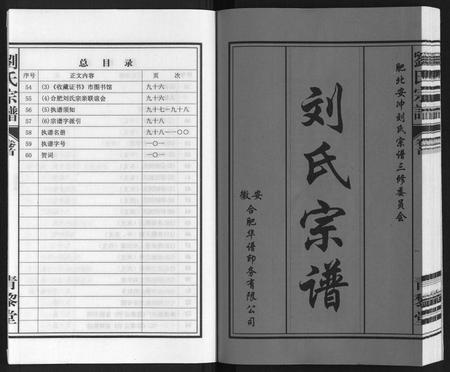 劉氏宗譜
卷首
青黎堂
总目录
序号 正文内容 页次
54 (3)《收藏证书》市图书馆 九十六
55 (4)合肥刘氏宗亲联谊会 九十六
56 (5)执谱须知 九十七-九十八
57 (6)宗谱字派引 九十八
58 执谱名册 九十八-一〇〇
59 执谱字号 一〇一
60 贺词 一〇一
肥北安冲刘氏宗谱三修委员会
刘氏宗谱
安徽合肥华谱印务有限公司
劉氏宗譜
卷首
青黎堂